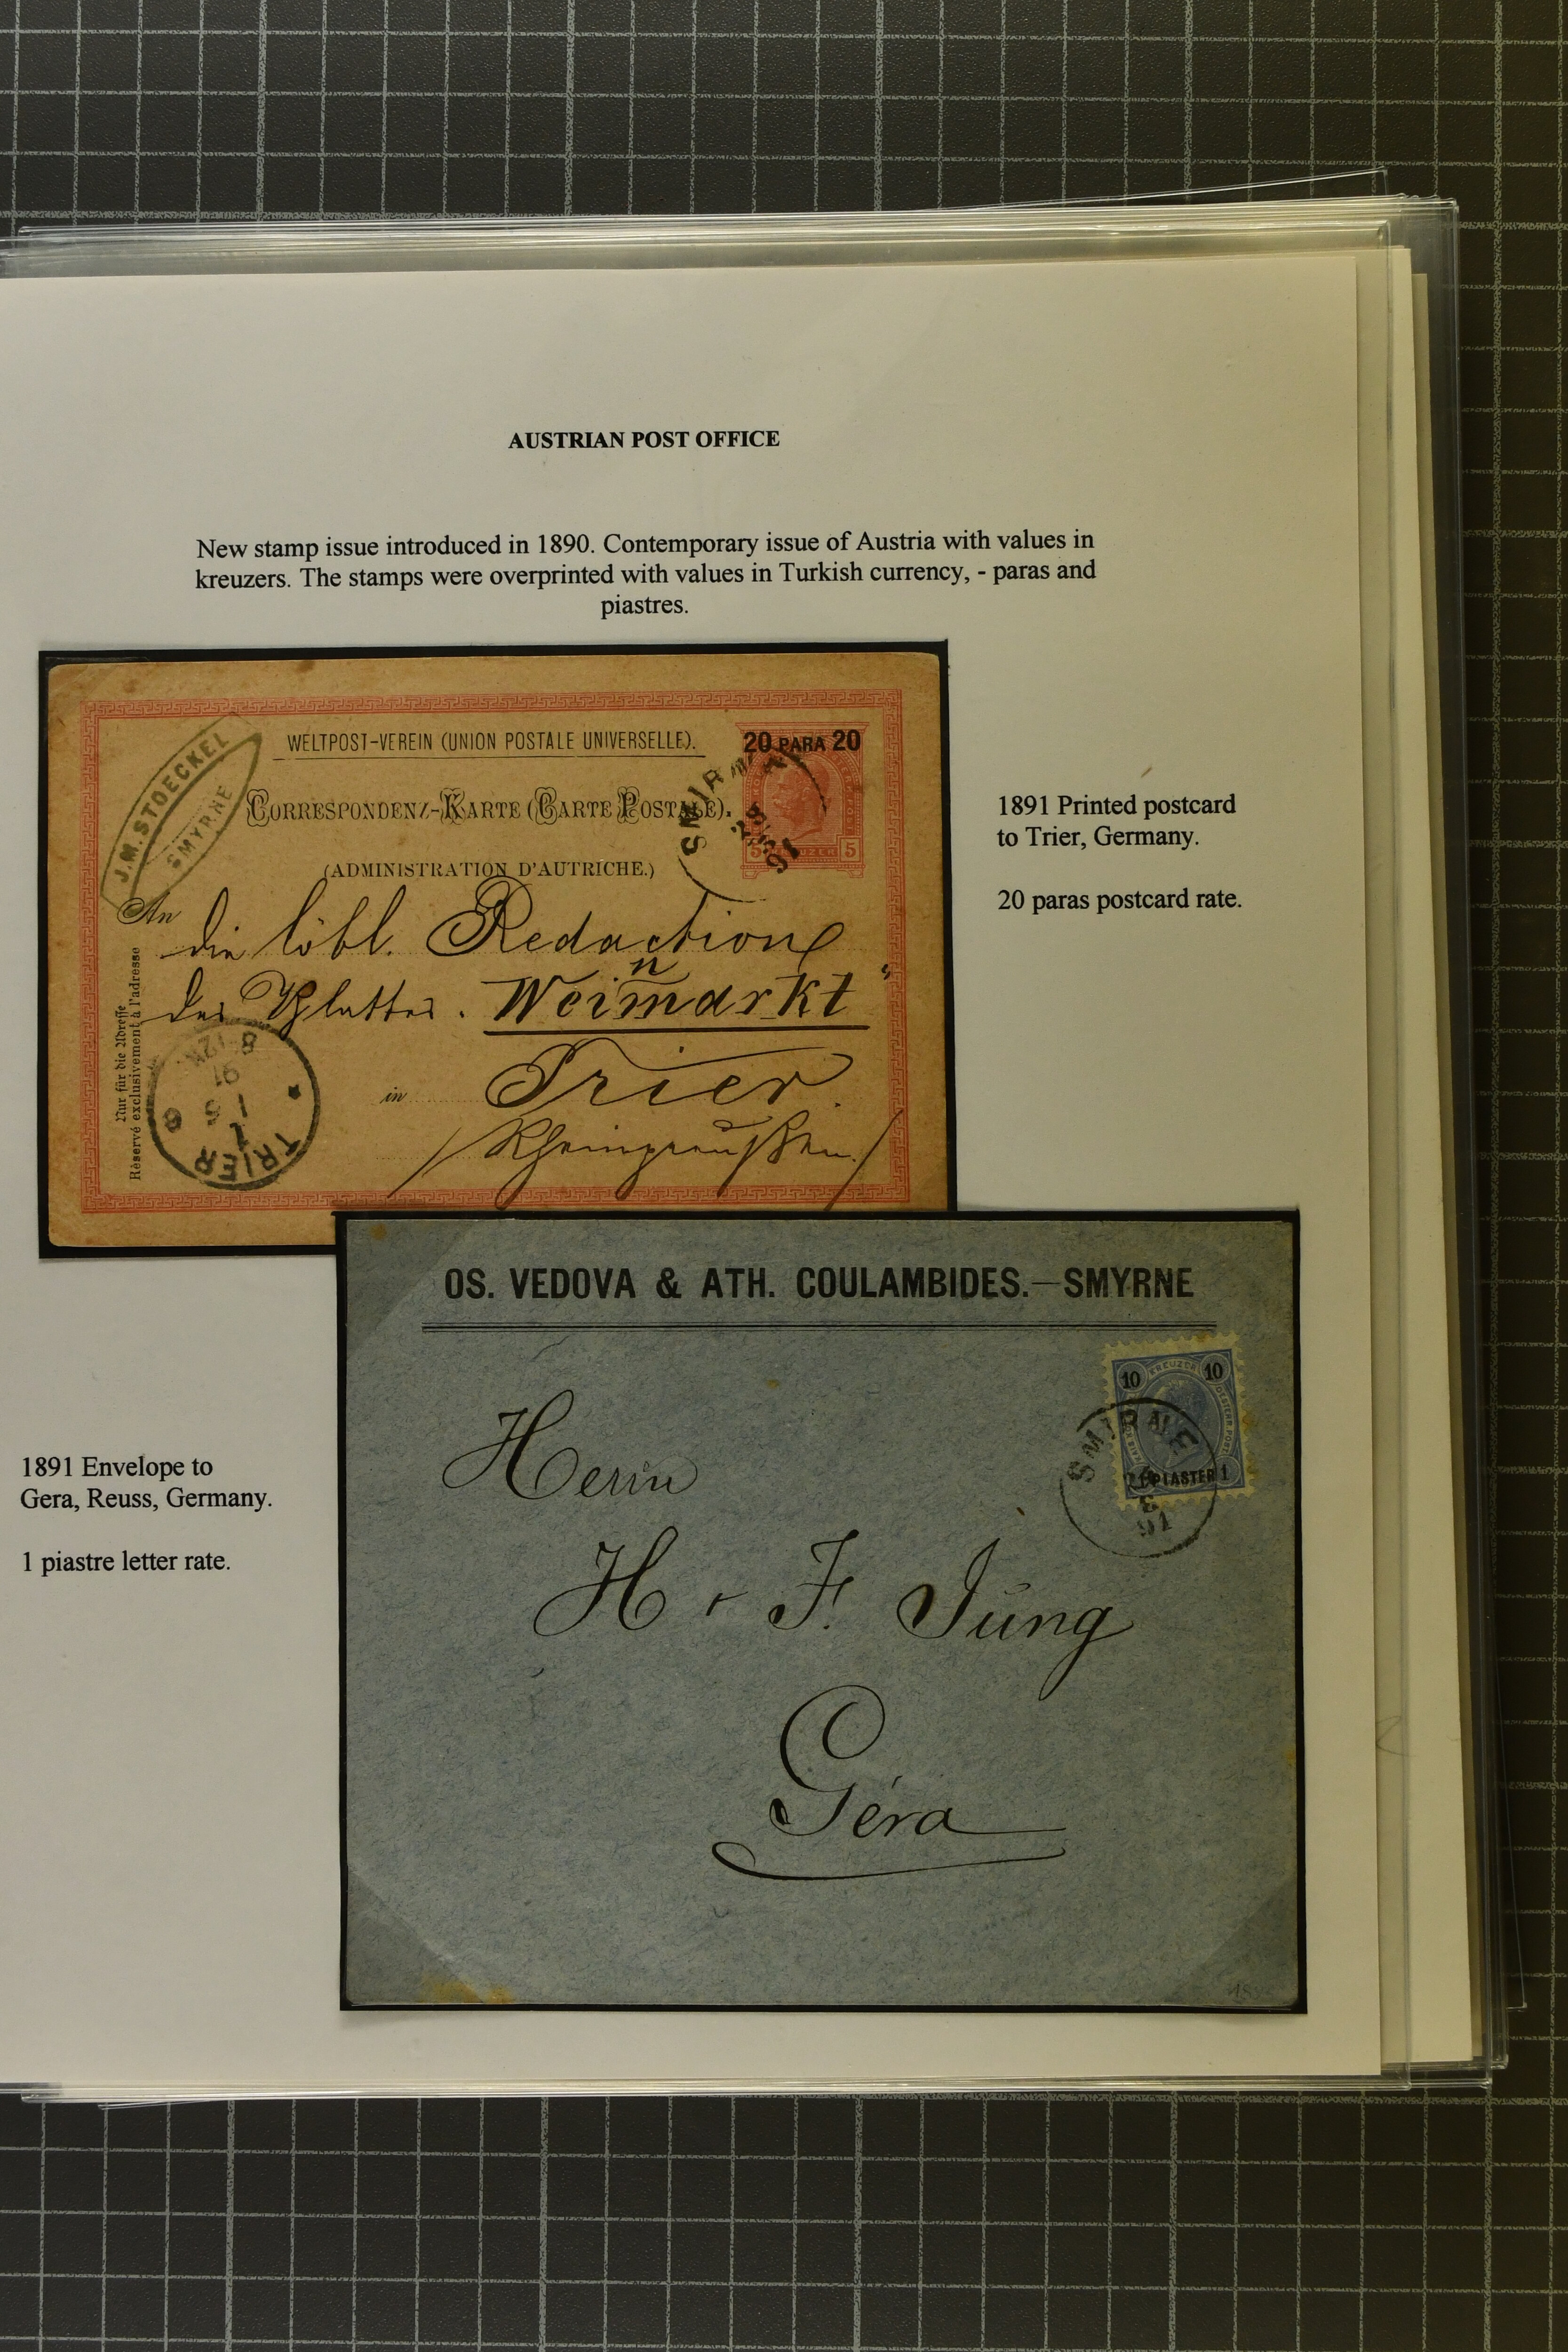 AUSTRIAN POST OFFICE
New stamp issue introduced in 1890. Contemporary issue of Austria with values in
kreuzers. The stamps were overprinted with values in Turkish currency, - paras and
piastres.
J.M. STOECKEL
SMYRNE
WELTPOST-VEREIN (UNION POSTALE UNIVERSELLE).
CORRESPONDENZ-KARTE (CARTE POSTALE).
(ADMINISTRATION D'AUTRICHE.)
20 PARA 20
5 KREUZER 5
An
die löbl. Redaction
des Blattes. "Weinmarkt"
in Trier.
/Rheinpreußen./
Nur für die Adresse
Réservé exclusivement à l'adresse
TRIER
91
1891 Printed postcard
to Trier, Germany.
20 paras postcard rate.
OS. VEDOVA & ATH. COULAMBIDES.—SMYRNE
10 KREUZER 10
1 PIASTER 1
SMIRNE
91
Herrn
H & F. Jung
Gera
1891 Envelope to
Gera, Reuss, Germany.
1 piastre letter rate.